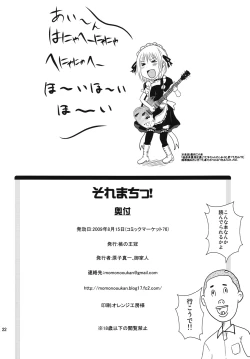 あい〜ん
はにゃへ〜にゃにゃ
へにゃにゃへ〜
ほ〜いほ〜い
ほ〜〜い
それまちっ!
奥付
発効日:2009年8月15日(コミックマーケット76)
発行:桃の王冠
発行者:原子貴一、御家人
連絡先:momonoouukan@gmail.com
http://momonoouukan.blog17.fc2.com/
印刷:オレンジ工房様
※18歳以下の閲覧禁止
こんな本なんか
読んでられるかよ
行こうで!!
22